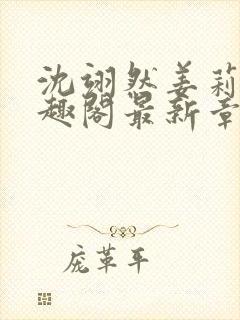 沈翊然姜莉
趣阁最新章
庞革平